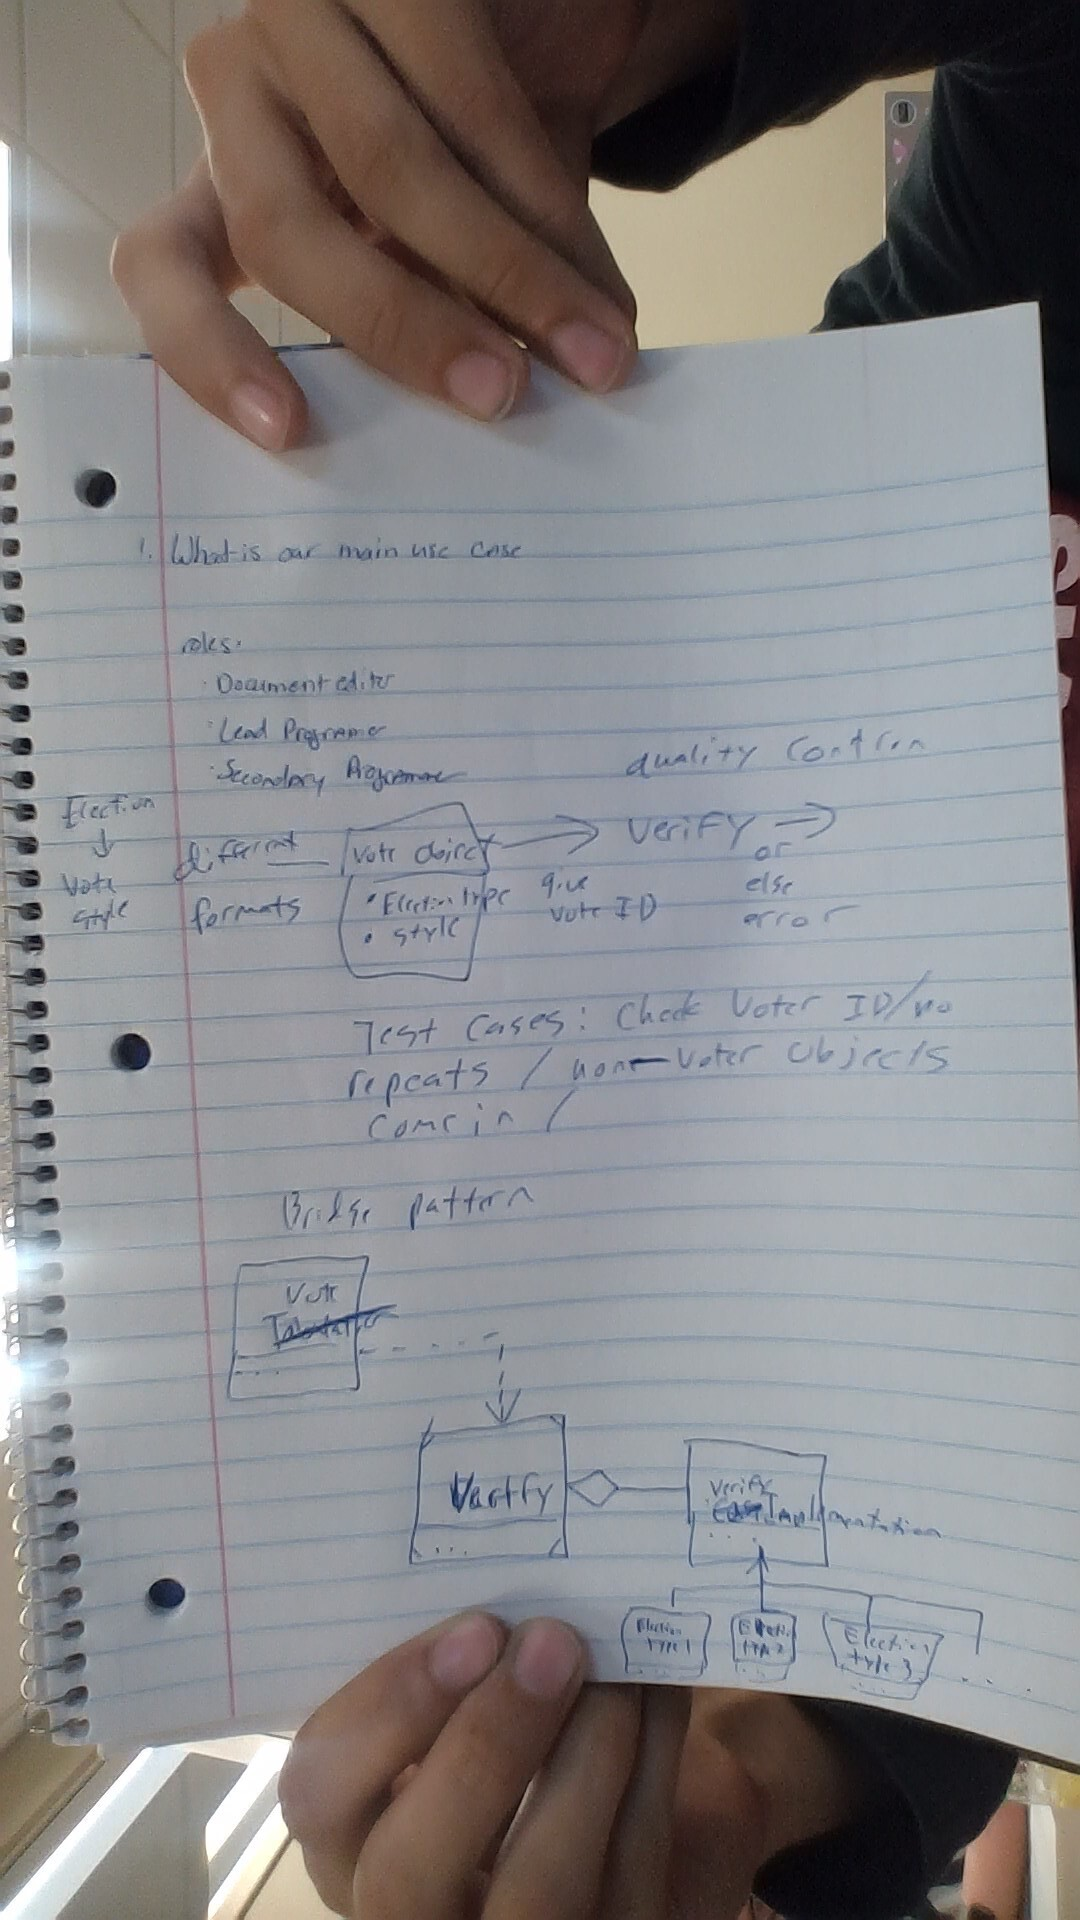 1. What is our main use case
roles:
· Document editor
· Lead Programer
· Secondary Programmer
quality Contron
Election
↓
Vote
style
different
formats
Vote object
• Election type
• style
give
vote ID
Verify
or
else
error
Test Cases: Check Voter ID/no
repeats / non-Voter Objects
come in /
Bridge pattern
Vote
...
Verify
...
Verify
Implementation
...
Election
type 1
...
Election
type 2
...
Election
type 3
...
...